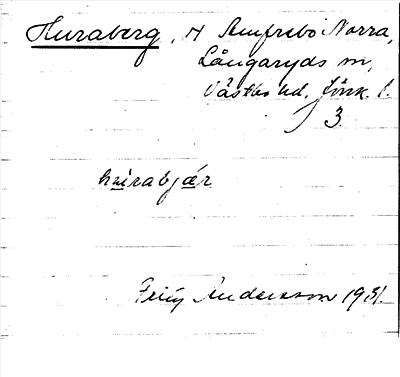 Huraberg, H Amfrebo Norra,
Långaryds sn,
Västbo hd, Jönk. l.
3
hurabjär
Friij Andersson 1931.